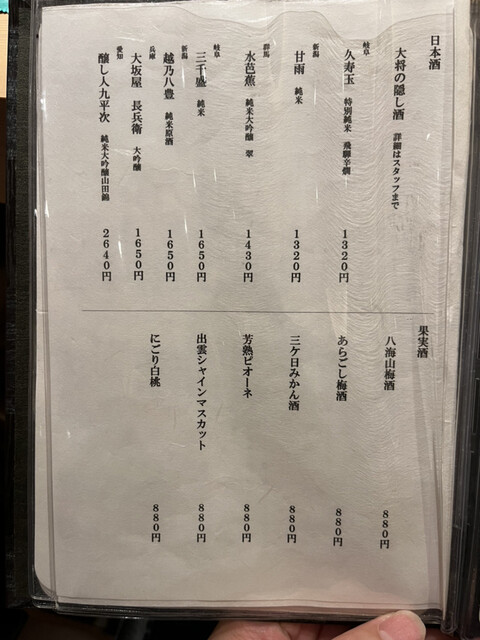 日本酒
大将の隠し酒 詳細はスタッフまで
岐阜
久寿玉 特別純米 飛騨辛燗 1320円
新潟
甘雨 純米 1320円
群馬
水芭蕉 純米大吟醸 翠 1430円
岐阜
三千盛 純米 1650円
新潟
越乃八豊 純米原酒 1650円
兵庫
大坂屋 長兵衛 大吟醸 1650円
愛知
醸し人九平次 純米大吟醸山田錦 2640円
果実酒
八海山梅酒 880円
あらごし梅酒 880円
三ケ日みかん酒 880円
芳熟ピオーネ 880円
出雲シャインマスカット 880円
にごり白桃 880円